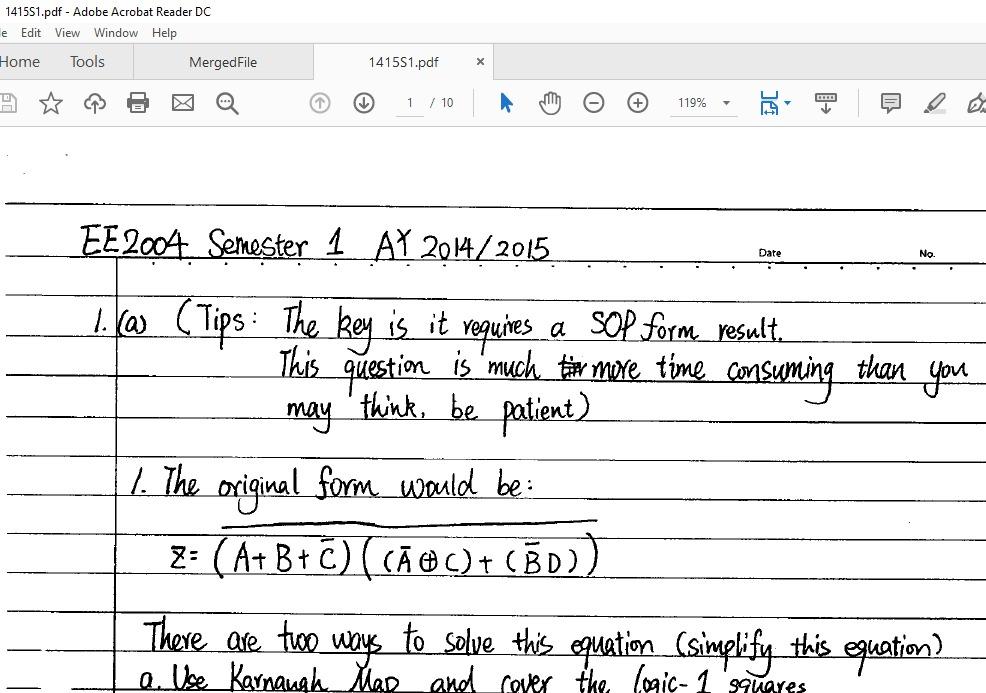 1415S1.pdf - Adobe Acrobat Reader DC
Edit View Window Help
Home Tools MergedFile 1415S1.pdf ×
1 / 10 119%
EE2004 Semester 1 AY 2014/2015 Date No.
1. (a) (Tips: The key is it requires a SOP form result.
This question is much more time consuming than you
may think, be patient)
1. The original form would be:
Z = (A+B+C̅)((A̅⊕C)+(B̅D))
There are two ways to solve this equation (simplify this equation)
a. Use Karnaugh Map and cover the logic-1 squares